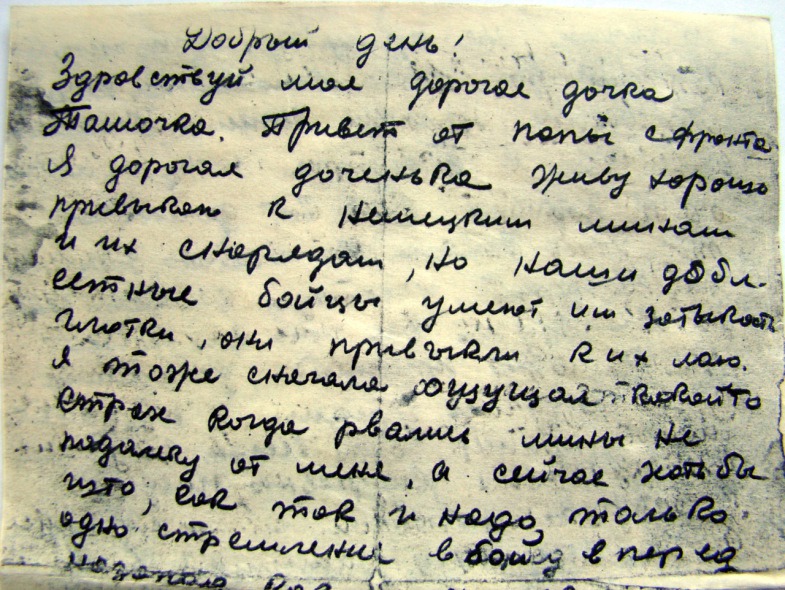 Добрый день!
Здравствуй моя дорогая дочка
Тамочка. Привет от папы с фронта
Я дорогая доченька живу хорошо
привыкаю к немецким минам
и их снарядам, но наши добл-
естные бойцы умеют им затыкать
глотки, они привыкли к их лаю.
я тоже сначала ощущал какойто
страх когда рвались мины не
подалеку от меня, а сейчас хотьбы
што, как так и надо, только
одно стремление в бой, в перед